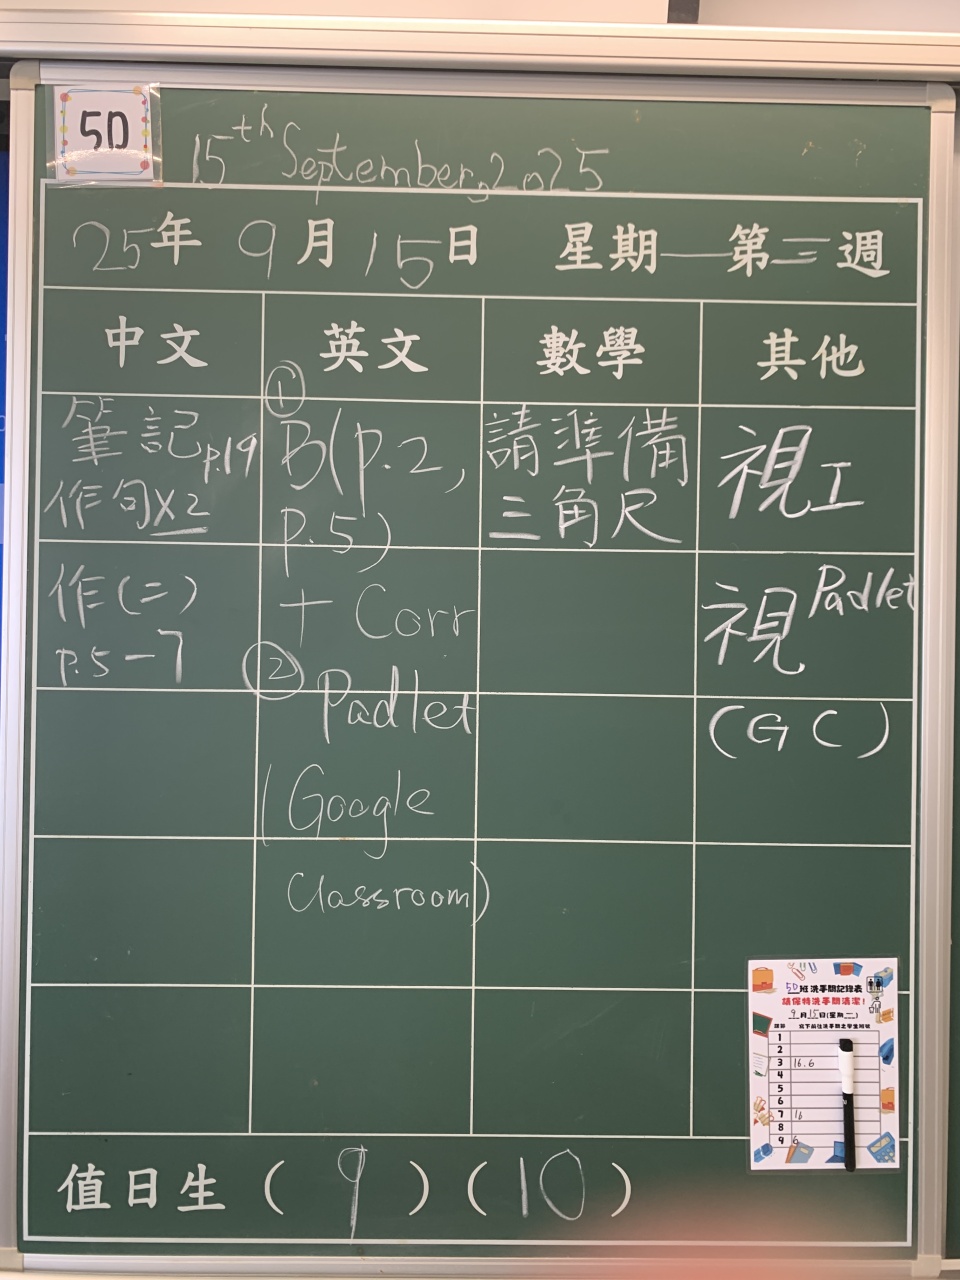 5D
15th September, 2025
25年 9月 15日 星期一 第三週
中文 英文 數學 其他
筆記 p.19
作句x2
作(二)
p.5-7
① B(p.2,
p.5)
+ Corr
② Padlet
(Google
Classroom)
請準備
三角尺
視工
視 Padlet
(GC)
5D班洗手間記錄表
請保持洗手間清潔!
9月15日(星期一)
1
2
3 16.6
4
5
6
7 16
8
9 6
值日生 (9) (10)